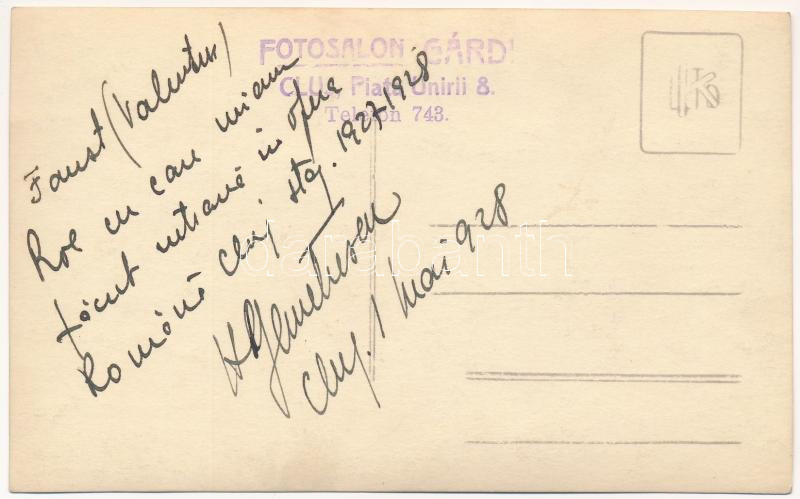 FOTOSALON GÁRD
CLUJ, Piața Unirii 8.
Telefon 743.
Faust (Valentin)
Rol cu care miam
făcut intrarea in opera
Română Cluj stag. 1927-1928
Cluj. 1 Mai 928
darabanth